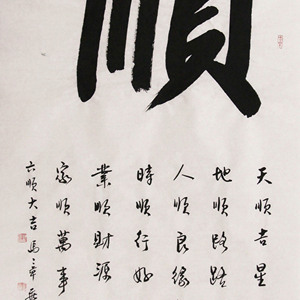 順
天順吉星
地順路路
人順良緣
時順行好
業順財源
家順萬事
六順大吉